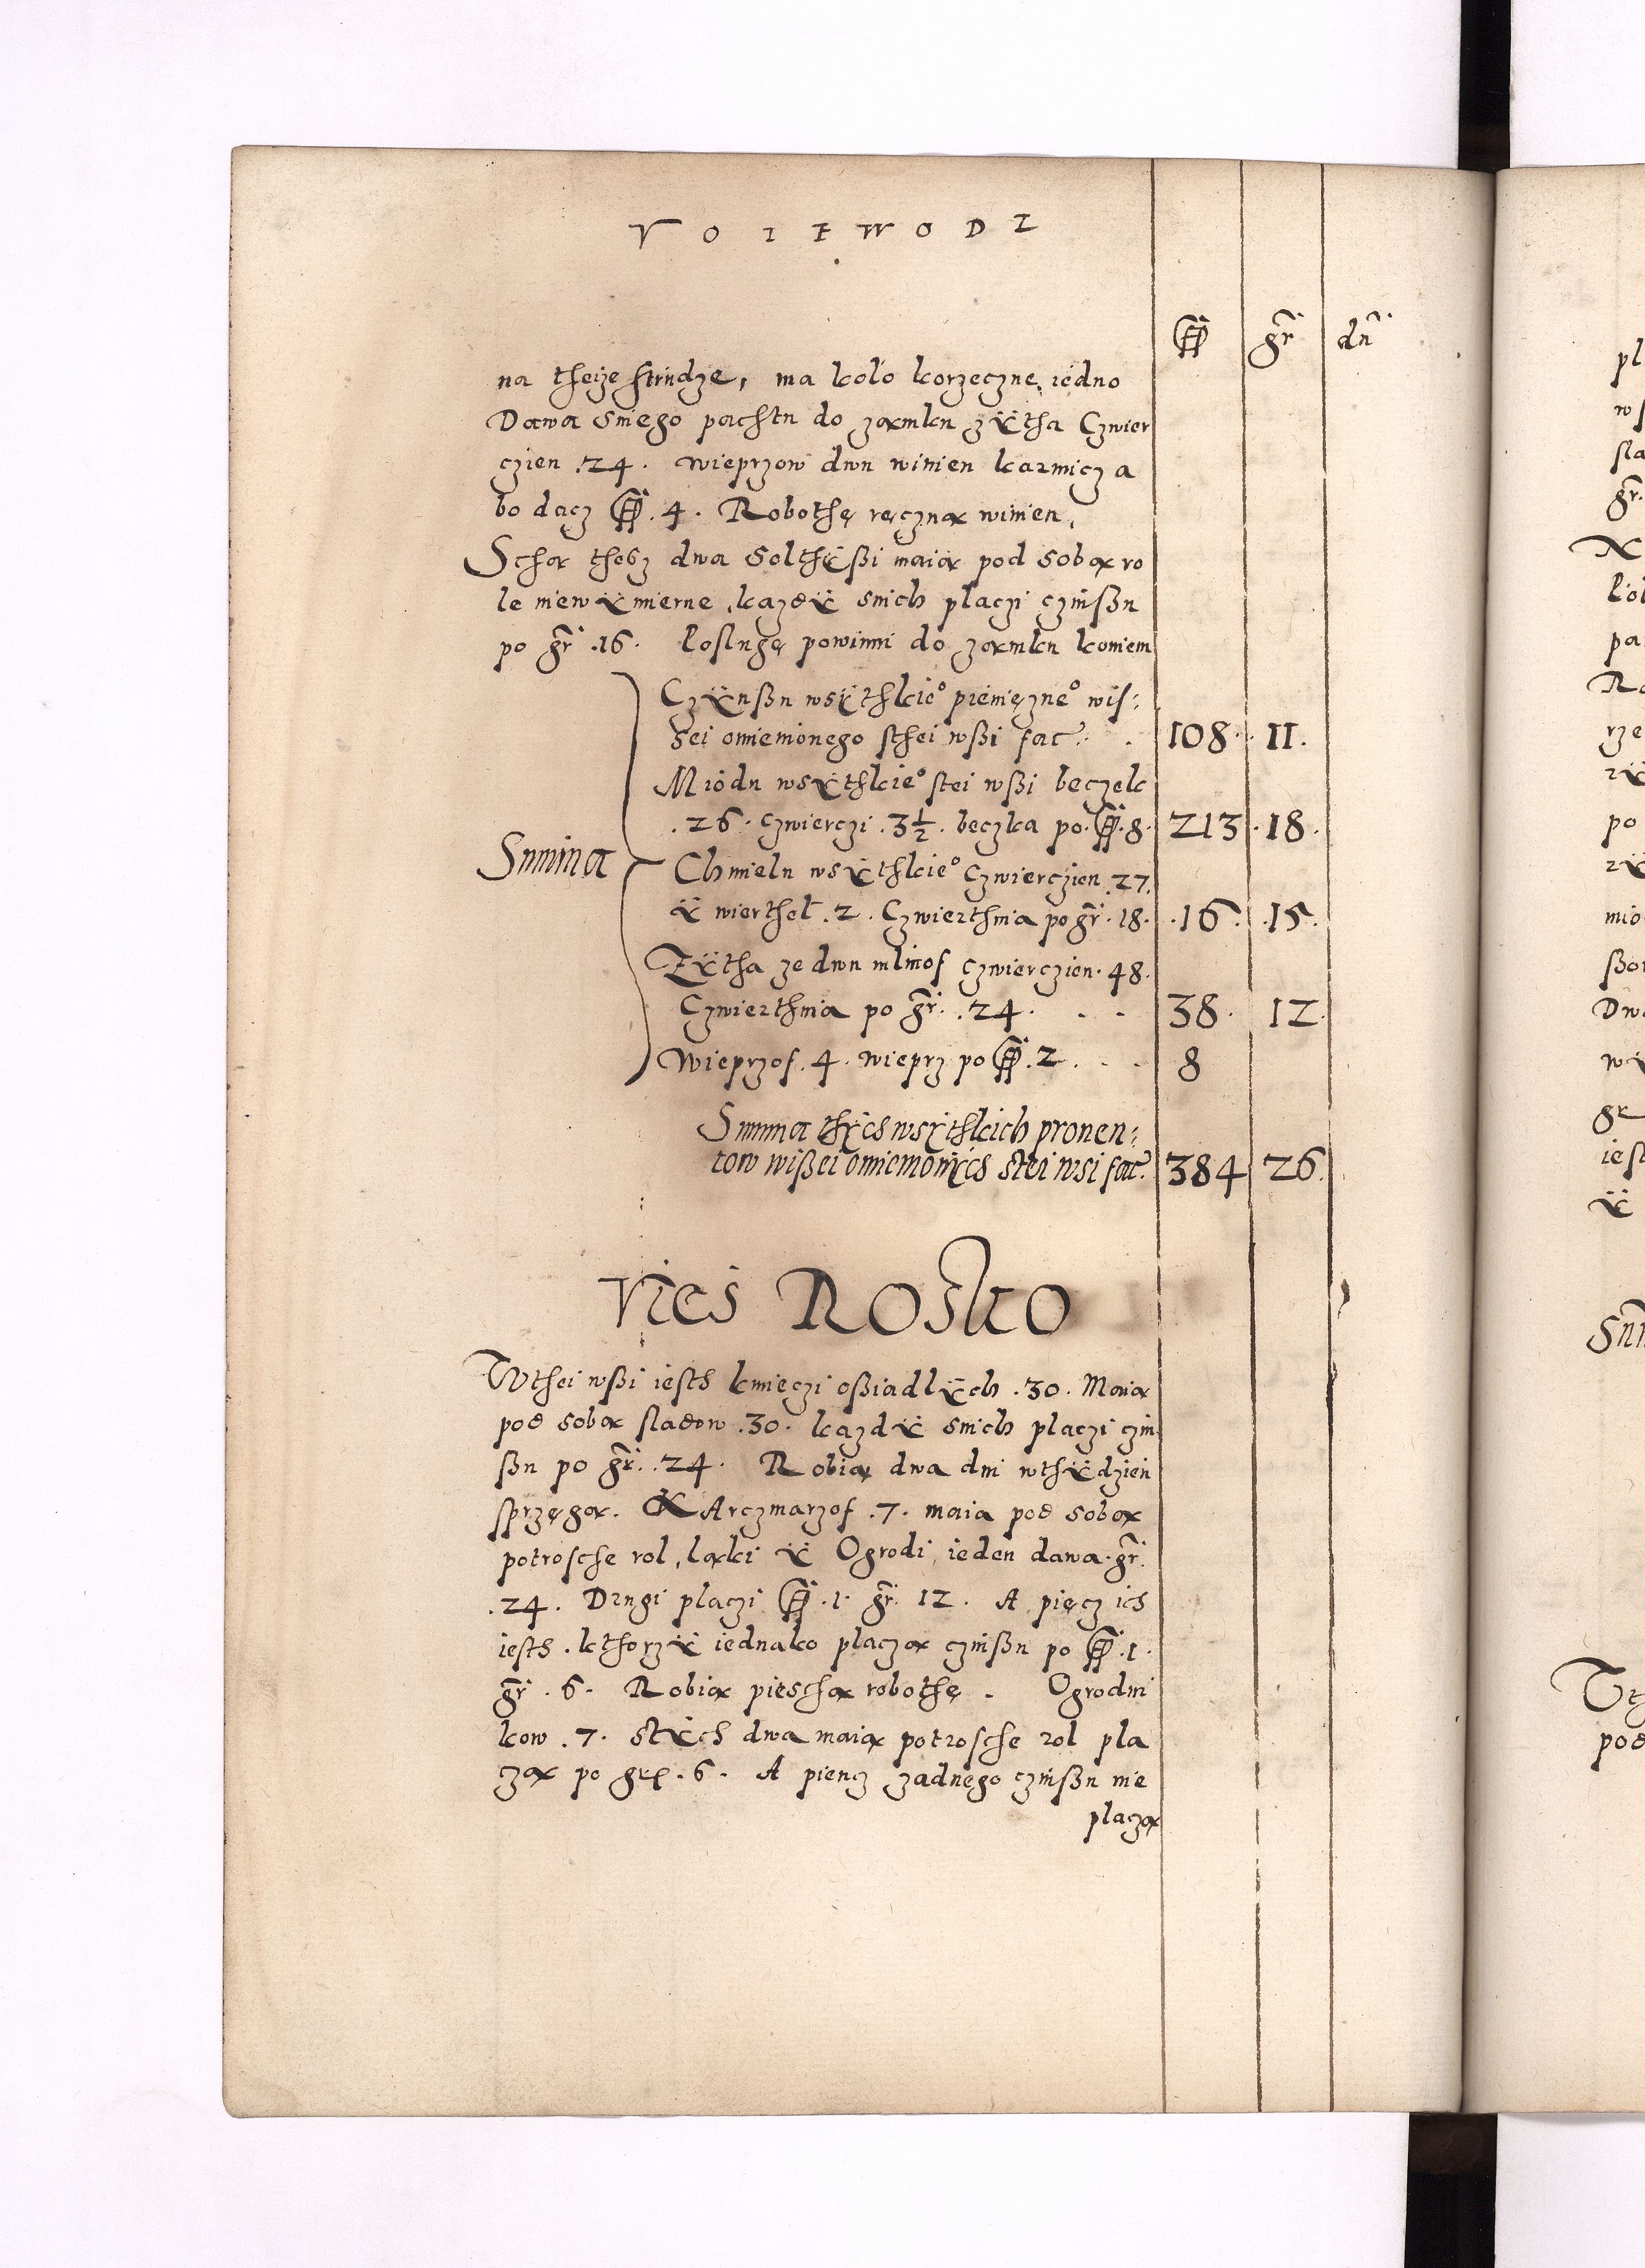 VOIEWODZ
fl gr dn
na theize strudze, ma koło korzeczne iedno
Dawa sniego pachtu do zamku zÿtha Czwier
czien .24. wieprzow dwu winien karmicz a
bo dacz fl .4. Robothę ręczną winien,
Są thesz dwa Solthÿßi maią pod sobą ro
le niewÿmierne, każdÿ snich placzi czinßu
po gr .16. Posługę powinni do zamku koniem
Summa
Czÿnßu wsÿthkie° pieniężne° wis:
sei omienionego sthei wßi fac: . 108. 11.
Miodu wsÿthkie° stei wßi beczek
.26. czwierczi .3½. beczka po. fl .8. 213 .18.
Chmielu wsÿthkie° Czwierczien .27.
ÿ wierthel .2. Czwierthnia po gr .18. .16. .15.
Zÿtha ze dwu mlinof czwierczien .48.
Czwierthnia po gr .24. . . 38. 12.
Wieprzof .4. wieprz po fl .2. . . 8
Summa thÿch wsÿthkich prouen:
tow wißei omienionÿch stei wsi fac. 384 26.
Vies Rosko
Wthei wßi iesth kmieczi oßiadlÿch .30. Maią
pod sobą sladow .30. każdÿ snich placzi czin
ßu po gr .24. Robią dwa dni wthÿdzien
sprzęgą. KArczmarzof .7. maia pod sobą
potrosche rol, ląki ÿ Ogrodi, ieden dawa gr.
.24. Drugi placzi fl .1. gr. 12. A pięcz ich
iesth. kthorzÿ iednako placzą czinßu po fl .1.
gr .6. Robią pieschą robothę. Ogrodni
kow .7. stÿch dwa maią potrosche rol pla
czą po gr .6. A piencz żadnego czinßu nie
placzą